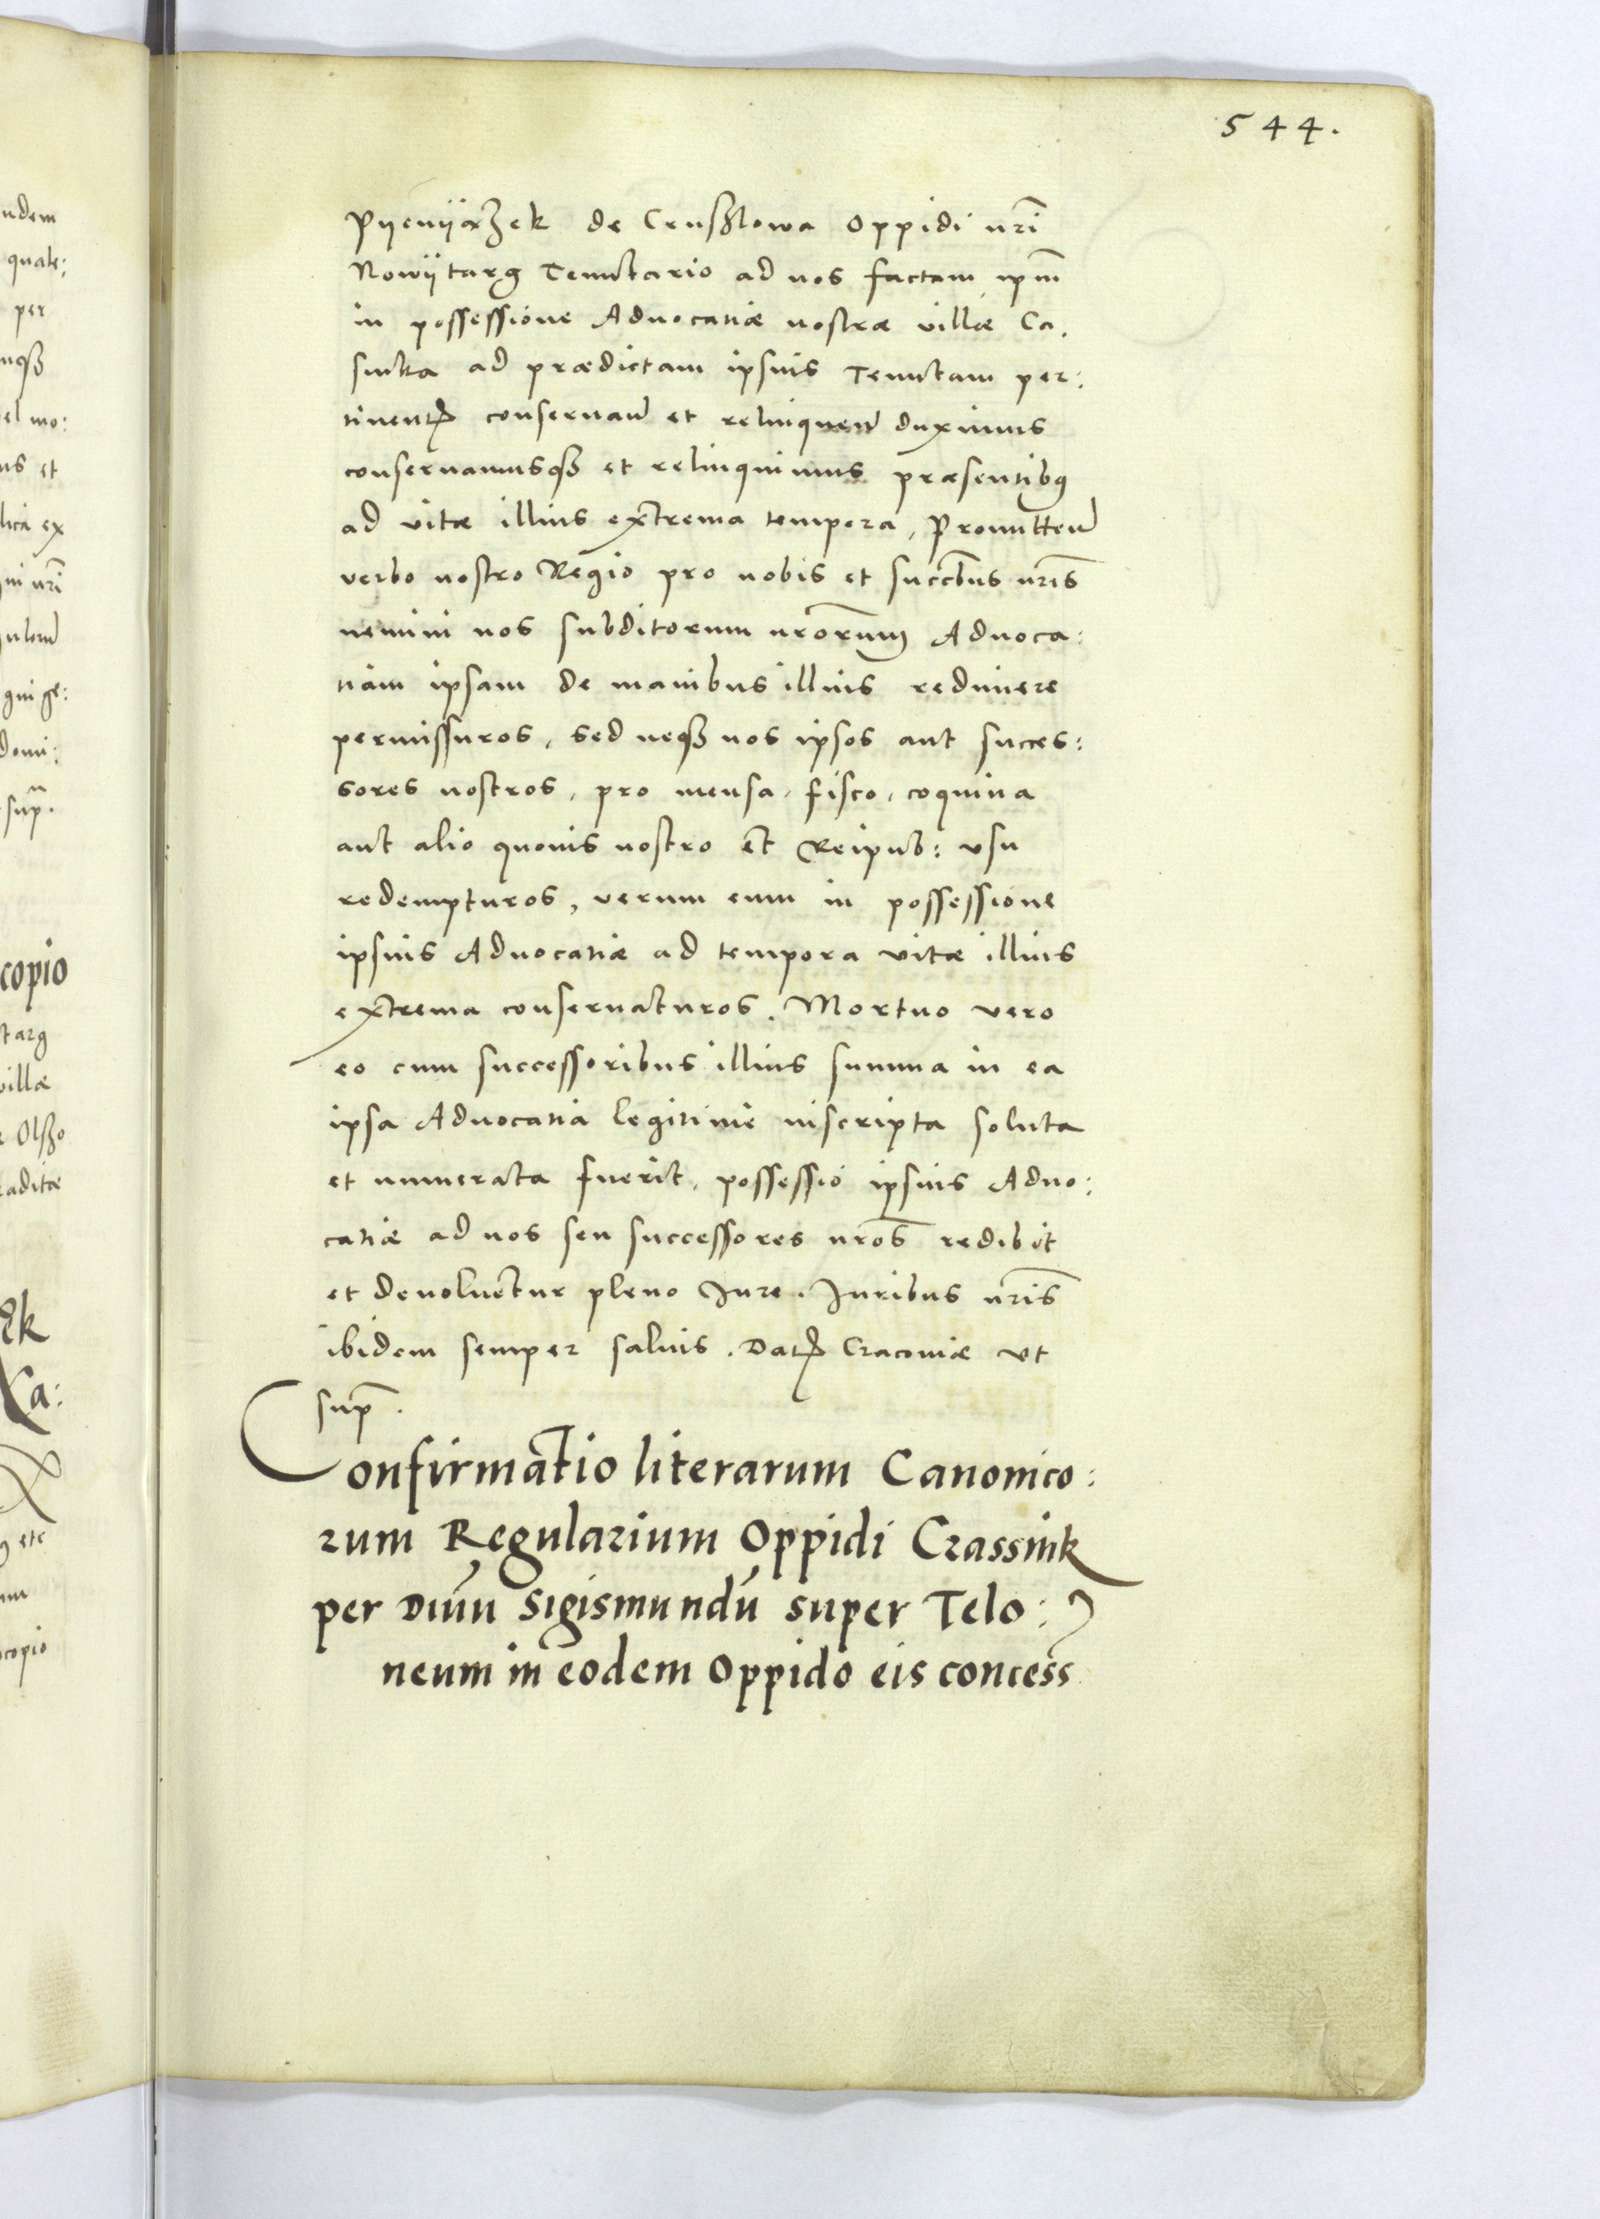 544.
Pyenyążek de Crusslowa Oppidi nrī
Nowytarg Tenutario ad nos factam ipm̄
in possessione Aduocatiæ nostræ villæ Ca,
sinka ad prædictam ipsius Tenutam per:
tinentꝭ conseruan̄ et relinquen̄ duximus
conseruamusqꝫ et relinquimus præsentibꝰ
ad vitæ illius extrema tempora, Promitten̄
verbo nostro Regio pro nobis et succb̄us nrīs
nemini nos subditorum nrōrum Aduoca:
tiam ipsam de manibus illius redimere
permissuros, sed neqꝫ nos ipsos aut succes:
sores nostros, pro mensa, fisco, coquina
aut alio quouis nostro et Reipub: vsu
redempturos, verum eum in possessione
ipsius Aduocatiæ ad tempora vitæ illius
extrema conseruaturos. Mortuo vero
eo cum successoribus illius summa in ea
ipsa Aduocatia legitime inscripta soluta
et numerata fuerit, possessio ipsius Aduo:
catiæ ad nos seu successores nrōs redibit
et deuoluetur pleno Jure. Juribus nrīs
ibidem semper saluis. Datꝭ Cracouiæ vt
sup̄.
Confirmatio literarum Canonico:
rum Regularium Oppidi Crassnik
per Diuū Sigismundū super Telo:
neum in eodem Oppido eis concess